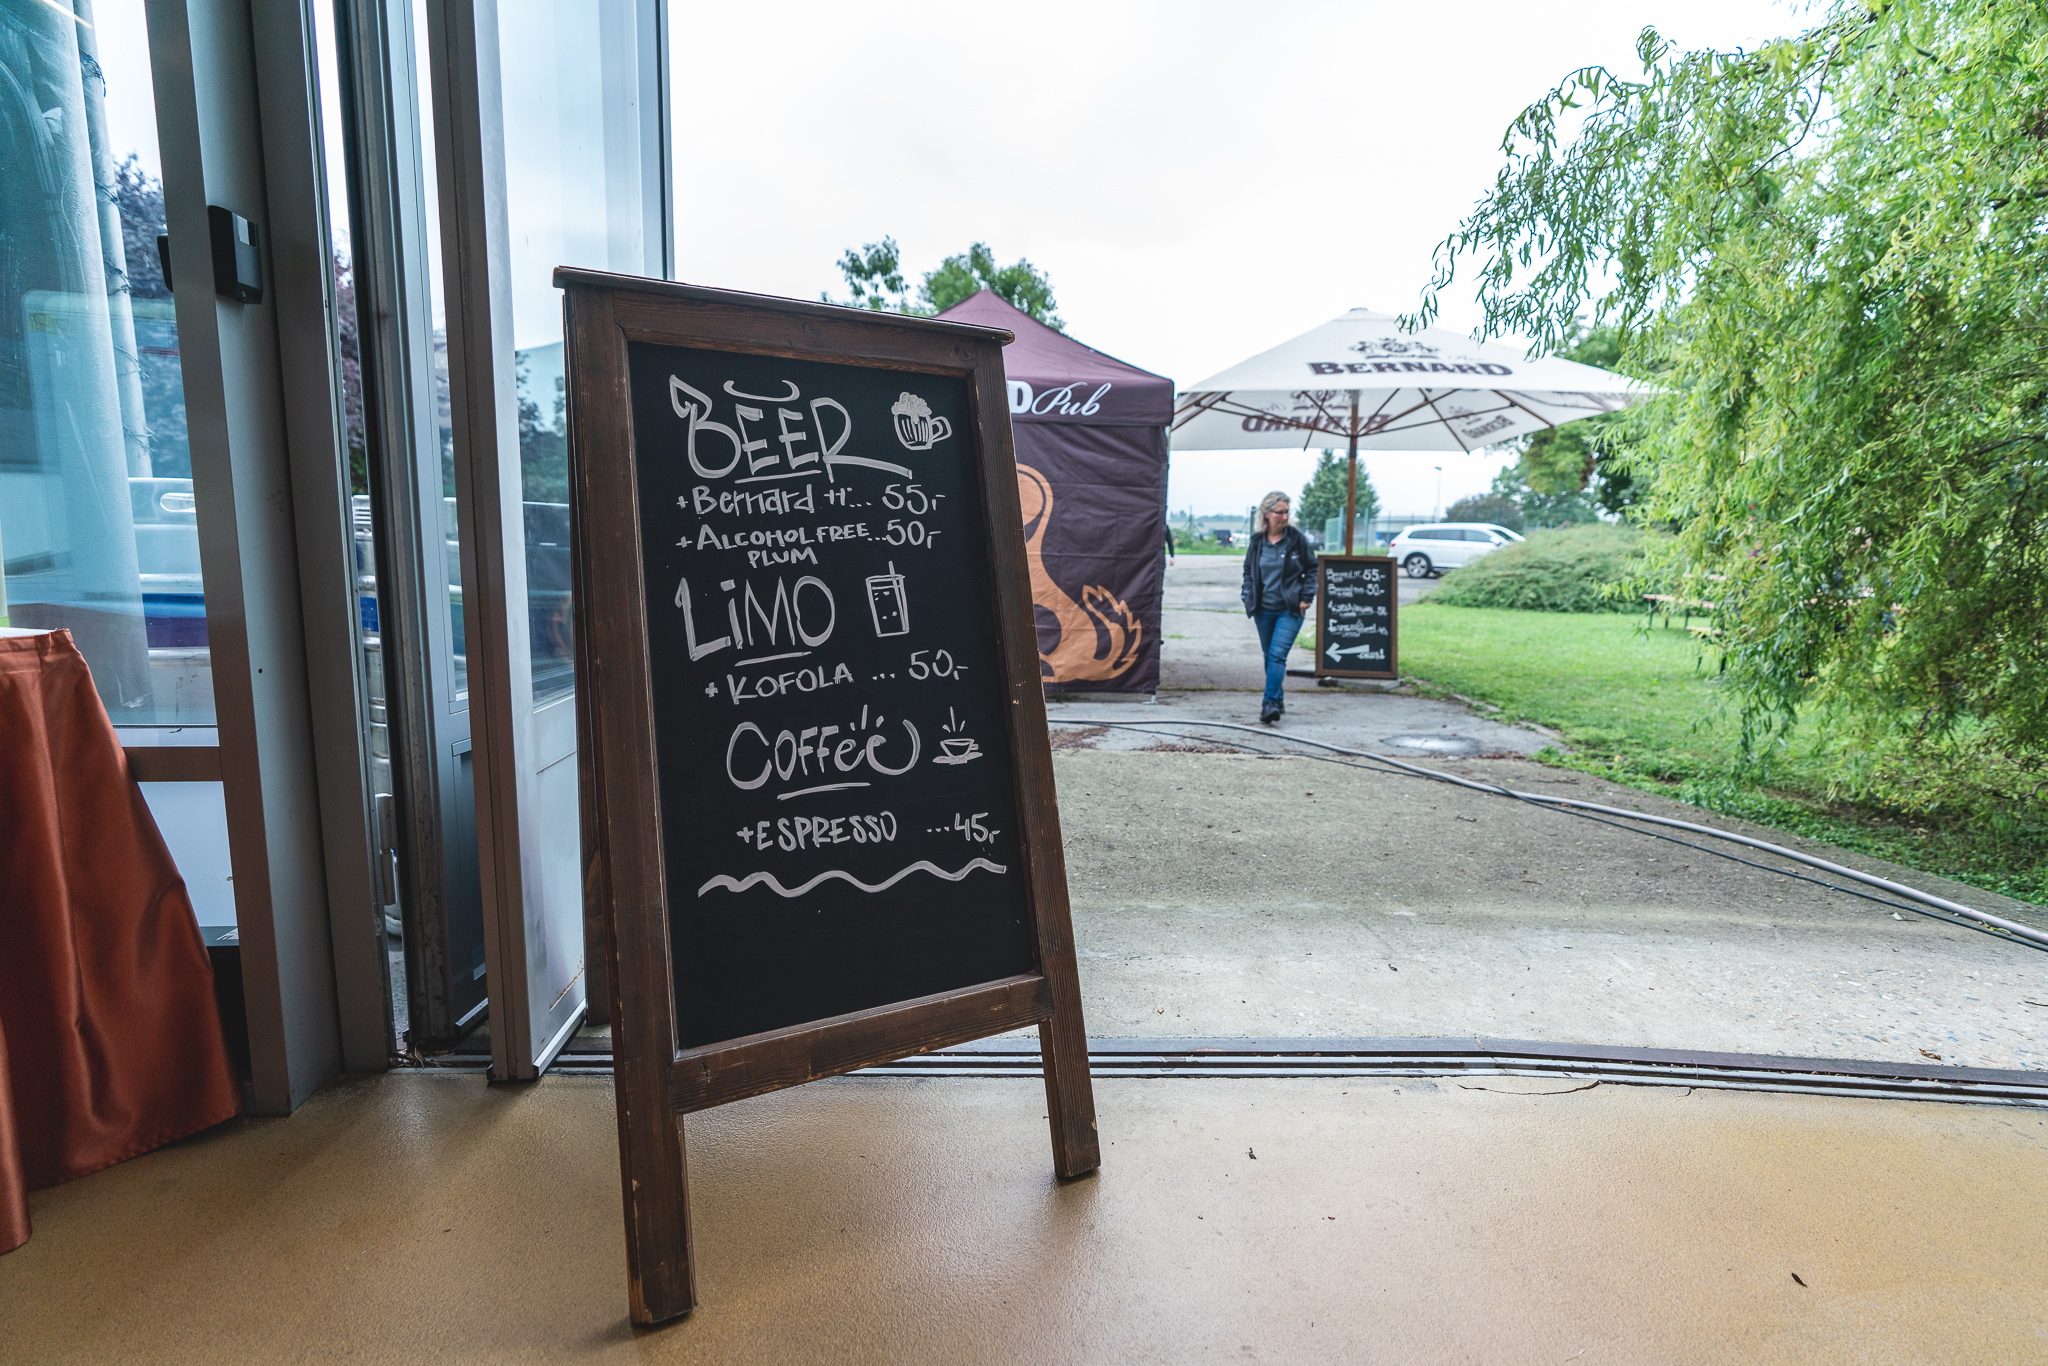 BEER
+Bernard 11°... 55,-
+ALCOHOL FREE...50,-
PLUM
LiMO
+KOFOLA ... 50,-
COFFEE
+ESPRESSO ...45,-
D Pub
BERNARD
BERNARD
BERNARD
55,-
50,-